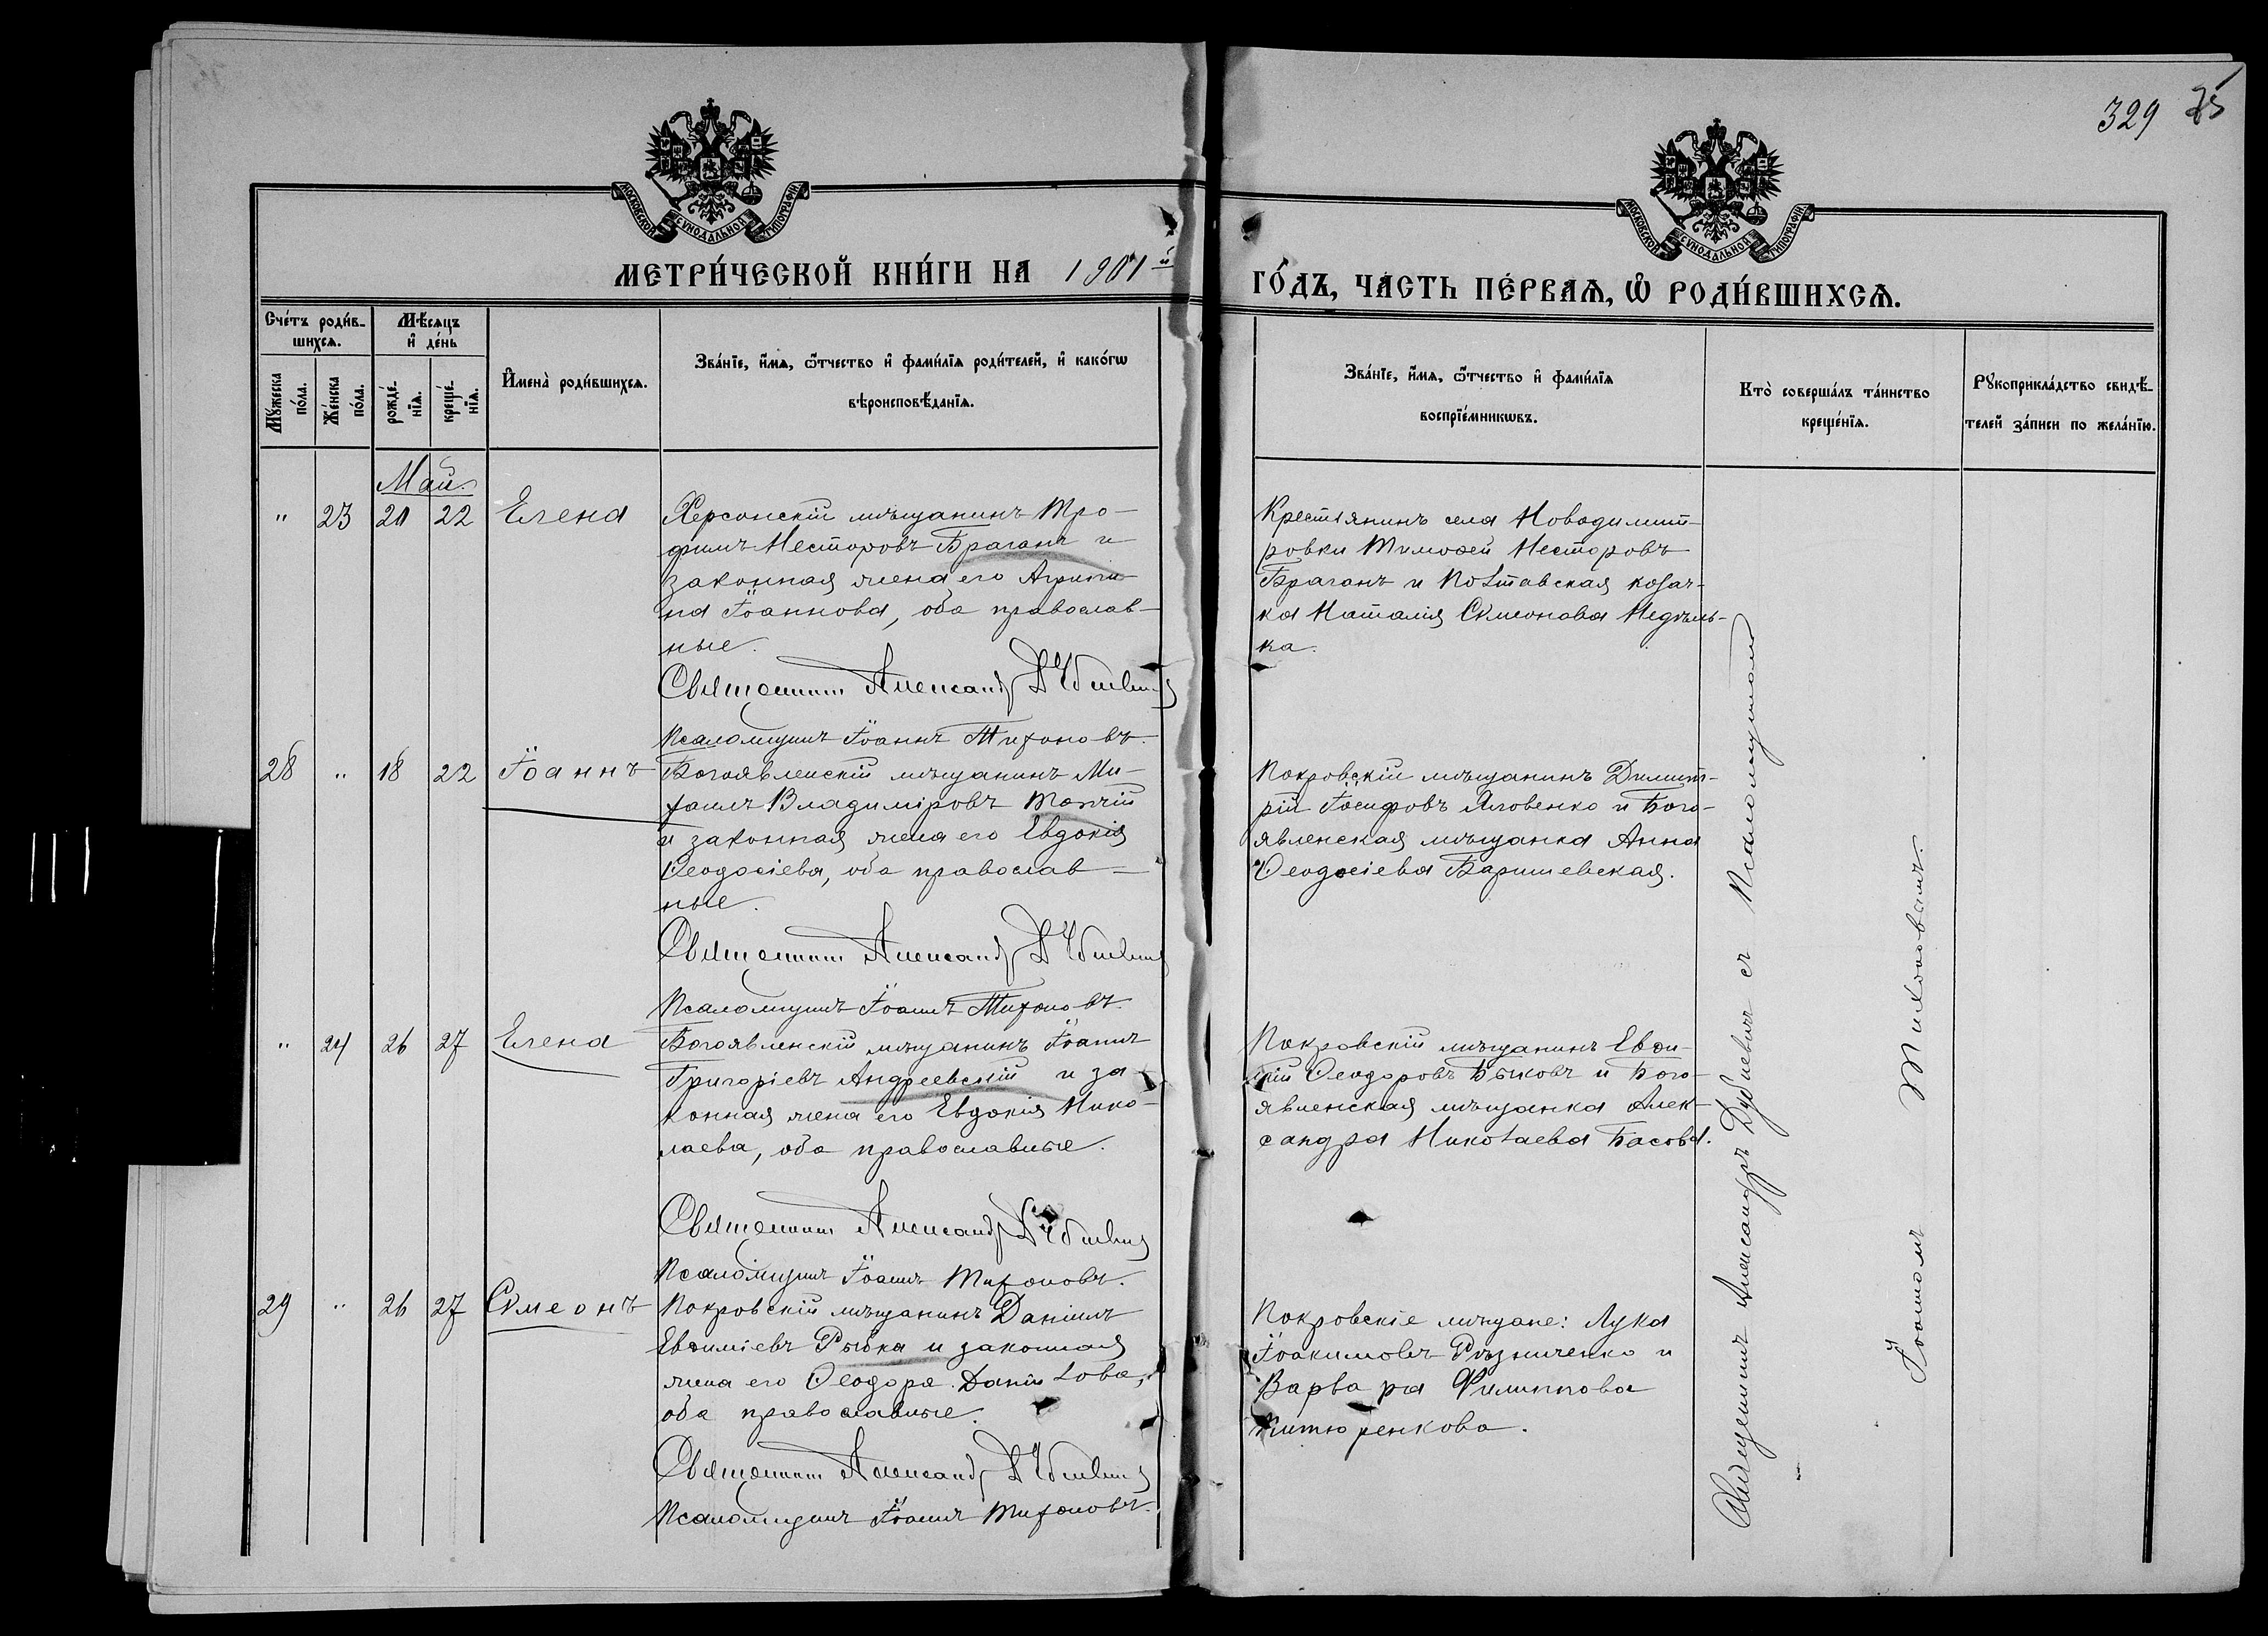 329 75
МОСКОВСКОЙ СѴНОДАЛЬНОЙ ТИПОГРАФІИ
МОСКОВСКОЙ СѴНОДАЛЬНОЙ ТИПОГРАФІИ
МЕТРИ́ЧЕСКОЙ КНИ́ГИ НА 1901й
ГО́ДЪ, ЧА́СТЬ ПЕ́РВАѦ, Ѡ҆ РОДИ́ВШИХСѦ.
Сче́тъ роди́в-
шихсѧ.
Мꙋ́жеска
по́ла.
Же́нска
по́ла.
Мѣ́сѧцъ
и҆ де́нь
рожде́-
нїѧ.
креще́-
нїѧ.
И҆мена̀ роди́вшихсѧ.
Зва́нїе, и҆́мѧ, ѻ҆́тчество и҆ фами́лїѧ роди́телей, и҆ како́гѡ
вѣроисповѣ́данїѧ.
Зва́нїе, и҆́мѧ, ѻ҆́тчество и҆ фами́лїѧ
воспрїе́мникѡвъ.
Кто̀ соверша́лъ та́инство
креще́нїѧ.
Рꙋкоприкла́дство свидѣ́-
телей за́писи по жела́нїю.
Май.
" 23 21 22 Елена
Херсонскій мѣщанинъ Тро-
фимъ Несторовъ Браганъ и
законная жена его Агрипи-
на Іоаннова, оба православ-
ные.
Священникъ Александръ
Псаломщикъ Іоаннъ Тихоновъ.
Крестьянинъ села Новодимит-
ровки Тимоѳей Несторовъ
Браганъ и Полтавская козач-
ка Наталія Сѵмеонова Недѣль-
ка.
28 " 18 22 Іоаннъ
Богоявленскій мѣщанинъ Ми-
хаилъ Владиміровъ Топчій
и законная жена его Евдокія
Ѳеодосіева, оба православ-
ные.
Священникъ Александръ
Псаломщикъ Іоаннъ Тихоновъ.
Покровскій мѣщанинъ Димит-
рій Іосифовъ Яловенко и Бого-
явленская мѣщанка Анна
Ѳеодосіева Баришевская.
" 24 26 27 Елена
Богоявленскій мѣщанинъ Іоаннъ
Григоріевъ Андреевскій и за-
конная жена его Евдокія Нико-
лаева, оба православные.
Священникъ Александръ
Псаломщикъ Іоаннъ Тихоновъ.
Покровскій мѣщанинъ Евѳи-
мій Ѳеодоровъ Быковъ и Бого-
явленская мѣщанка Алек-
сандра Николаева Басова.
29 " 26 27 Сѵмеонъ
Покровскій мѣщанинъ Даніилъ
Евѳиміевъ Рыбка и законная
жена его Ѳеодора Даніилова,
оба православные.
Священникъ Александръ
Псаломщикъ Іоаннъ Тихоновъ.
Покровскіе мѣщане: Лука
Іоакимовъ Рѣзниченко и
Варвара Филиппова
Питюренкова.
Священникъ Александръ съ Псаломщикомъ
Іоанномъ Тихоновымъ.